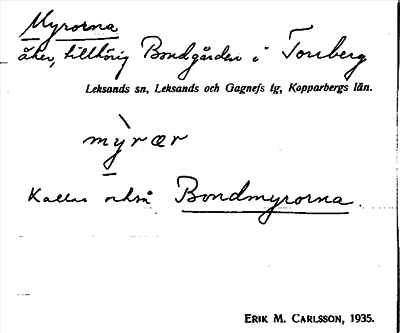 Myrorna
åker, tillhörig Bondgården i Torsberg
Leksands sn, Leksands och Gagnefs tg, Kopparbergs län.
mỳrær
Kallas också Bondmyrorna.
ERIK M. CARLSSON, 1935.